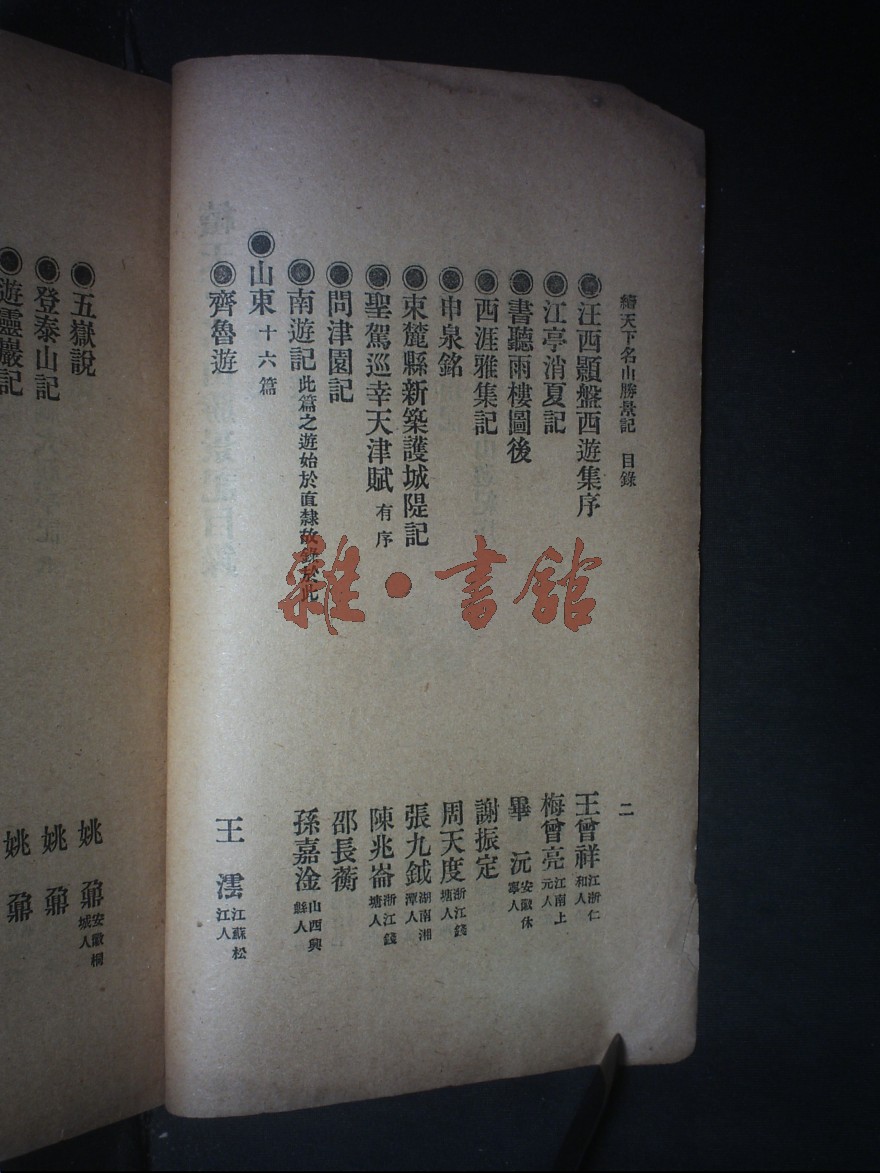 續天下名山勝景記 目錄 二
◉汪西顥盤西遊集序 王曾祥 江浙仁和人
◉江亭消夏記 梅曾亮 江南上元人
◉書聽雨樓圖後 畢沅 安徽休寧人
◉西涯雅集記 謝振定
◉申泉銘 周天度 浙江錢塘人
◉束麓縣新築護城隄記 張九鉞 湖南湘潭人
◉聖駕巡幸天津賦 有序 陳兆崙 浙江錢塘人
◉問津園記 邵長蘅
◉南遊記 此篇之遊始於直隸故錄於此 孫嘉淦 山西興縣人
◉山東 十六篇
◉齊魯遊 王澐 江蘇松江人
◉五嶽說 姚鼐 安徽桐城人
◉登泰山記 姚鼐
◉遊靈巖記 姚鼐
雜·書館